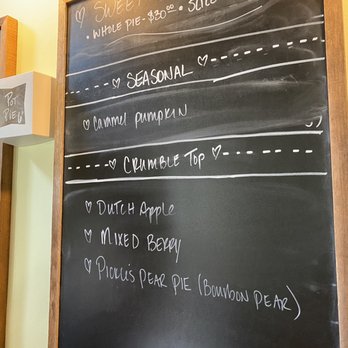 ♡ SWEET
• WHOLE PIE - $30⁰⁰ • SLICE
♡ SEASONAL
♡ Caramel pumpkin
♡ CRUMBLE TOP ♡
♡ DUTCH Apple
♡ MIXED BERRY
♡ PICKLE'S PEAR PIE (BOURBON PEAR)
POT
PIE